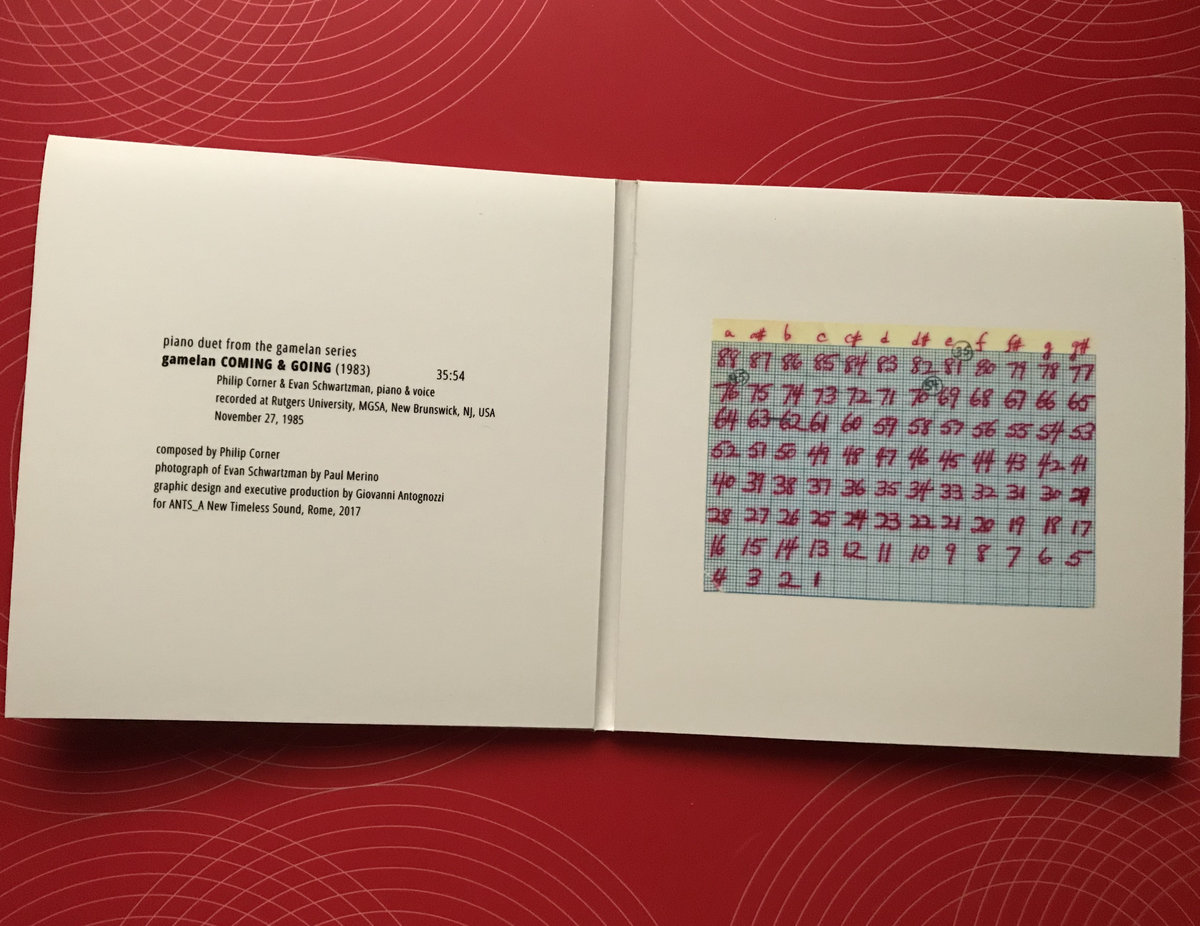 piano duet from the gamelan series
gamelan COMING & GOING (1983) 35:54
Philip Corner & Evan Schwartzman, piano & voice
recorded at Rutgers University, MGSA, New Brunswick, NJ, USA
November 27, 1985
composed by Philip Corner
photograph of Evan Schwartzman by Paul Merino
graphic design and executive production by Giovanni Antognozzi
for ANTS_A New Timeless Sound, Rome, 2017
a a# b c c# d d# e f f# g g#
88 87 86 85 84 83 82 81 80 79 78 77
76 75 74 73 72 71 70 69 68 67 66 65
64 63 62 61 60 59 58 57 56 55 54 53
52 51 50 49 48 47 46 45 44 43 42 41
40 39 38 37 36 35 34 33 32 31 30 29
28 27 26 25 24 23 22 21 20 19 18 17
16 15 14 13 12 11 10 9 8 7 6 5
4 3 2 1